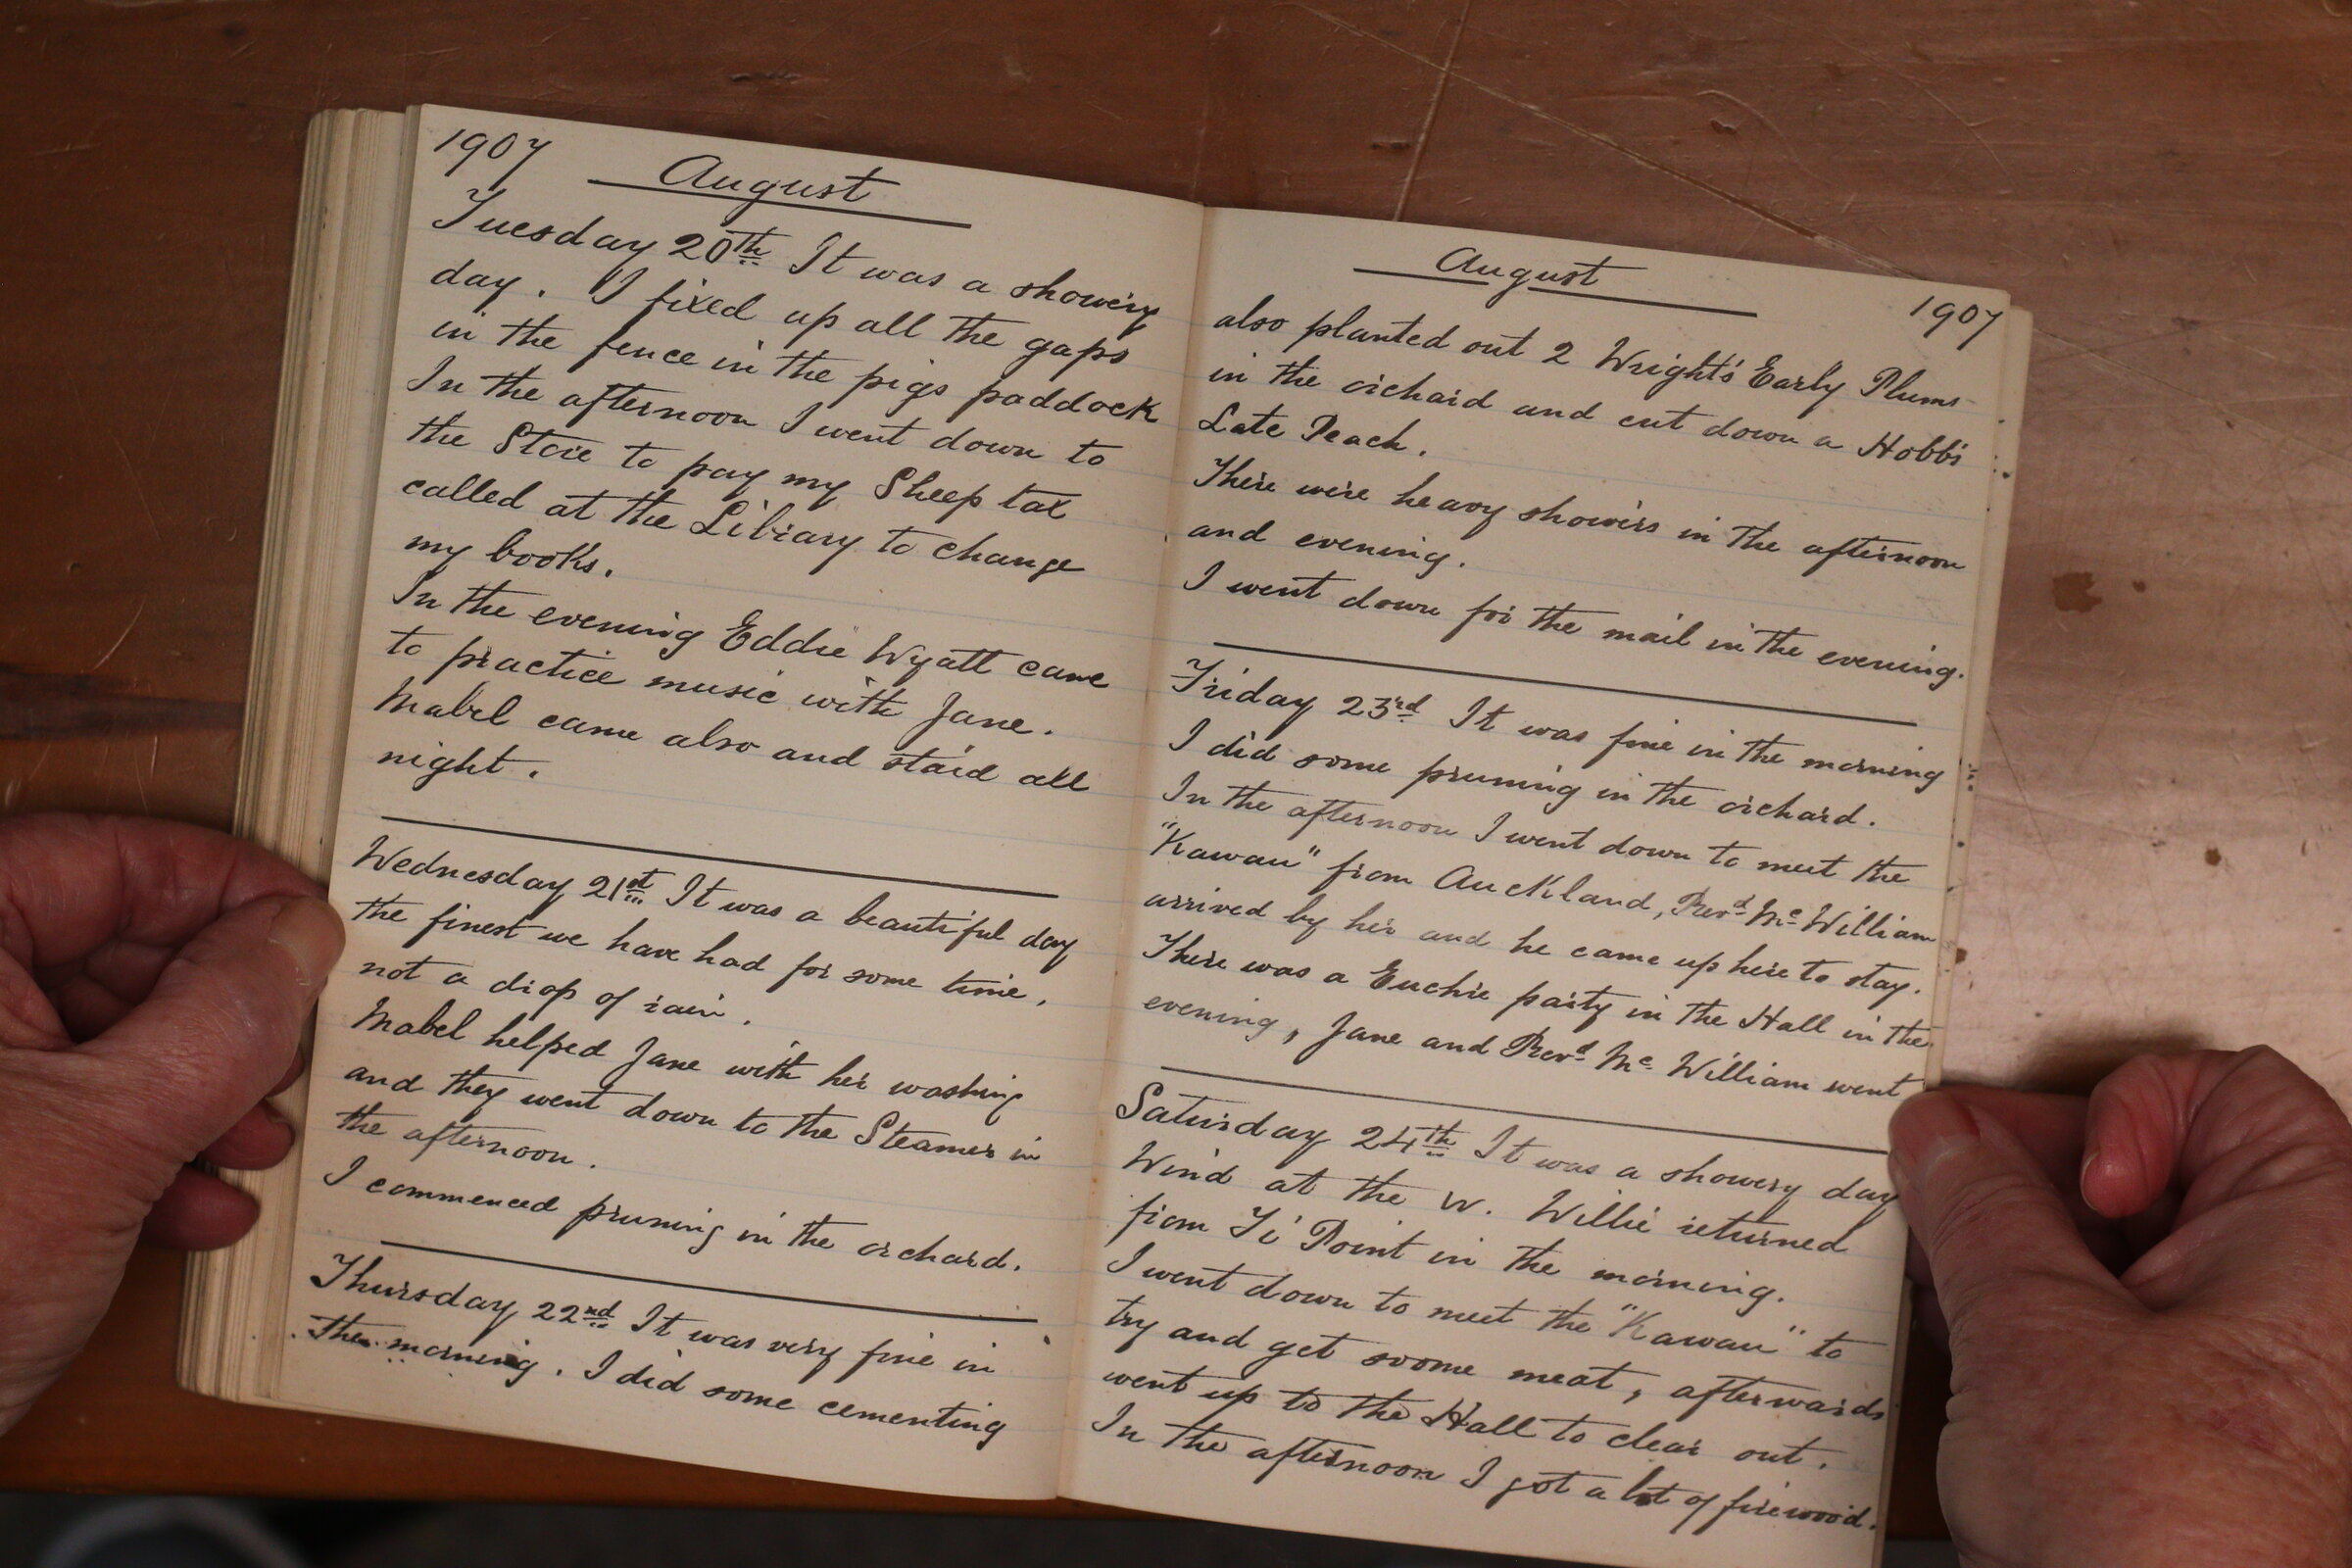 1907
August
Tuesday 20th It was a showery
day. I fixed up all the gaps
in the fence in the pigs paddock
In the afternoon I went down to
the Store to pay my Sheep tax
called at the Library to change
my books.
In the evening Eddie Wyatt came
to practice music with Jane.
Mabel came also and staid all
night.
Wednesday 21st It was a beautiful day
the finest we have had for some time,
not a drop of rain.
Mabel helped Jane with her washing
and they went down to the Steamer in
the afternoon.
I commenced pruning in the orchard.
Thursday 22nd It was very fine in
the morning. I did some cementing
August
1907
also planted out 2 Wright's Early Plums
in the orchard and cut down a Hobbs
Late Peach.
There were heavy showers in the afternoon
and evening.
I went down for the mail in the evening.
Friday 23rd It was fine in the morning
I did some pruning in the orchard.
In the afternoon I went down to meet the
"Kawau" from Auckland, Revd Mc William
arrived by her and he came up here to stay.
There was a Euchre party in the Hall in the
evening, Jane and Revd Mc William went
Saturday 24th It was a showery day
Wind at the W. Willie returned
from Ti Point in the morning.
I went down to meet the "Kawau" to
try and get soome meat, afterwards
went up to the Hall to clear out.
In the afternoon I got a lot of firewood.